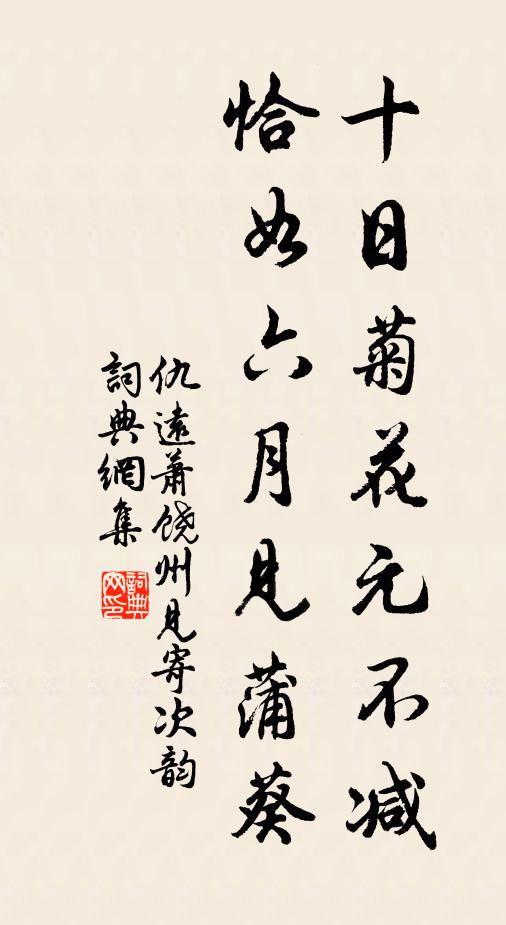 十日菊花元不减
恰如六月見蒲葵
仇遠蕭饒州見寄次韵
詞典網集
詞典网印